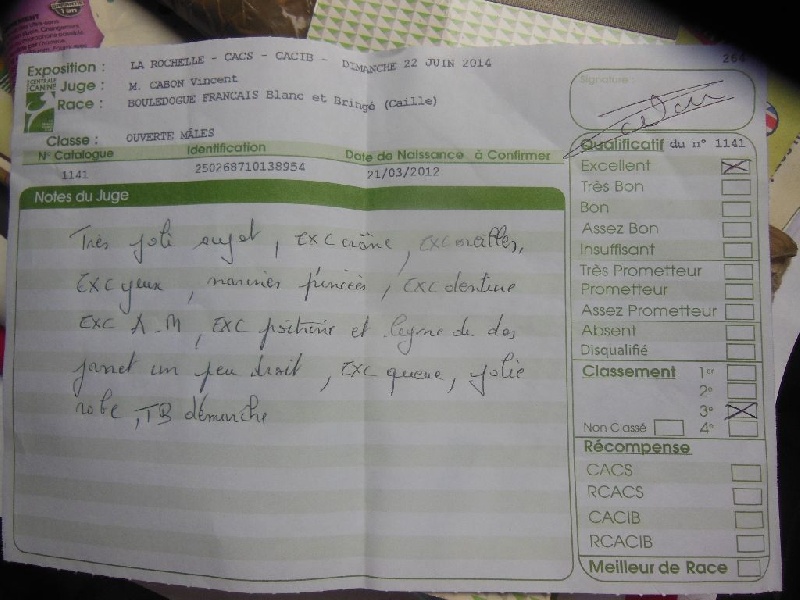 Exposition : LA ROCHELLE - CACS - CACIB - DIMANCHE 22 JUIN 2014
264
CENTRALE CANINE
Juge : M. CABON Vincent
Race : BOULEDOGUE FRANCAIS Blanc et Bringé (Caille)
Classe : OUVERTE MÂLES
N° Catalogue Identification Date de Naissance à Confirmer
1141 250268710138954 21/03/2012
Notes du Juge
Très joli sujet, EXC crâne, EXC oreilles,
EXC yeux, narines pincées, EXC denture
EXC A.M, EXC poitrine et ligne de dos
jarret un peu droit, EXC queue, jolie
robe, TB démarche
Signature :
Qualificatif du n° 1141
Excellent
Très Bon
Bon
Assez Bon
Insuffisant
Très Prometteur
Prometteur
Assez Prometteur
Absent
Disqualifié
Classement 1er
2e
3e
Non Classé 4e
Récompense
CACS
RCACS
CACIB
RCACIB
Meilleur de Race